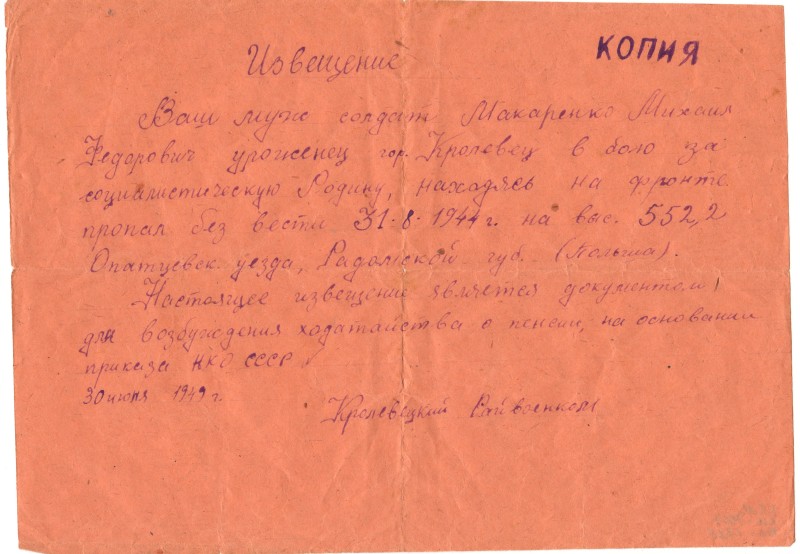 КОПИЯ
Извещение
Ваш муж солдат Макаренко Михаил
Федорович уроженец гор. Кролевец в бою за
социалистическую Родину, находясь на фронте
пропал без вести 31-8-1944 г. на выс. 552,2
Опатувск. уезда, Радомской губ. (Польша).
Настоящее извещение является документом
для возбуждения ходатайства о пенсии, на основании
приказа НКО СССР
30 июня 1949 г.
Кролевецкий Райвоенком